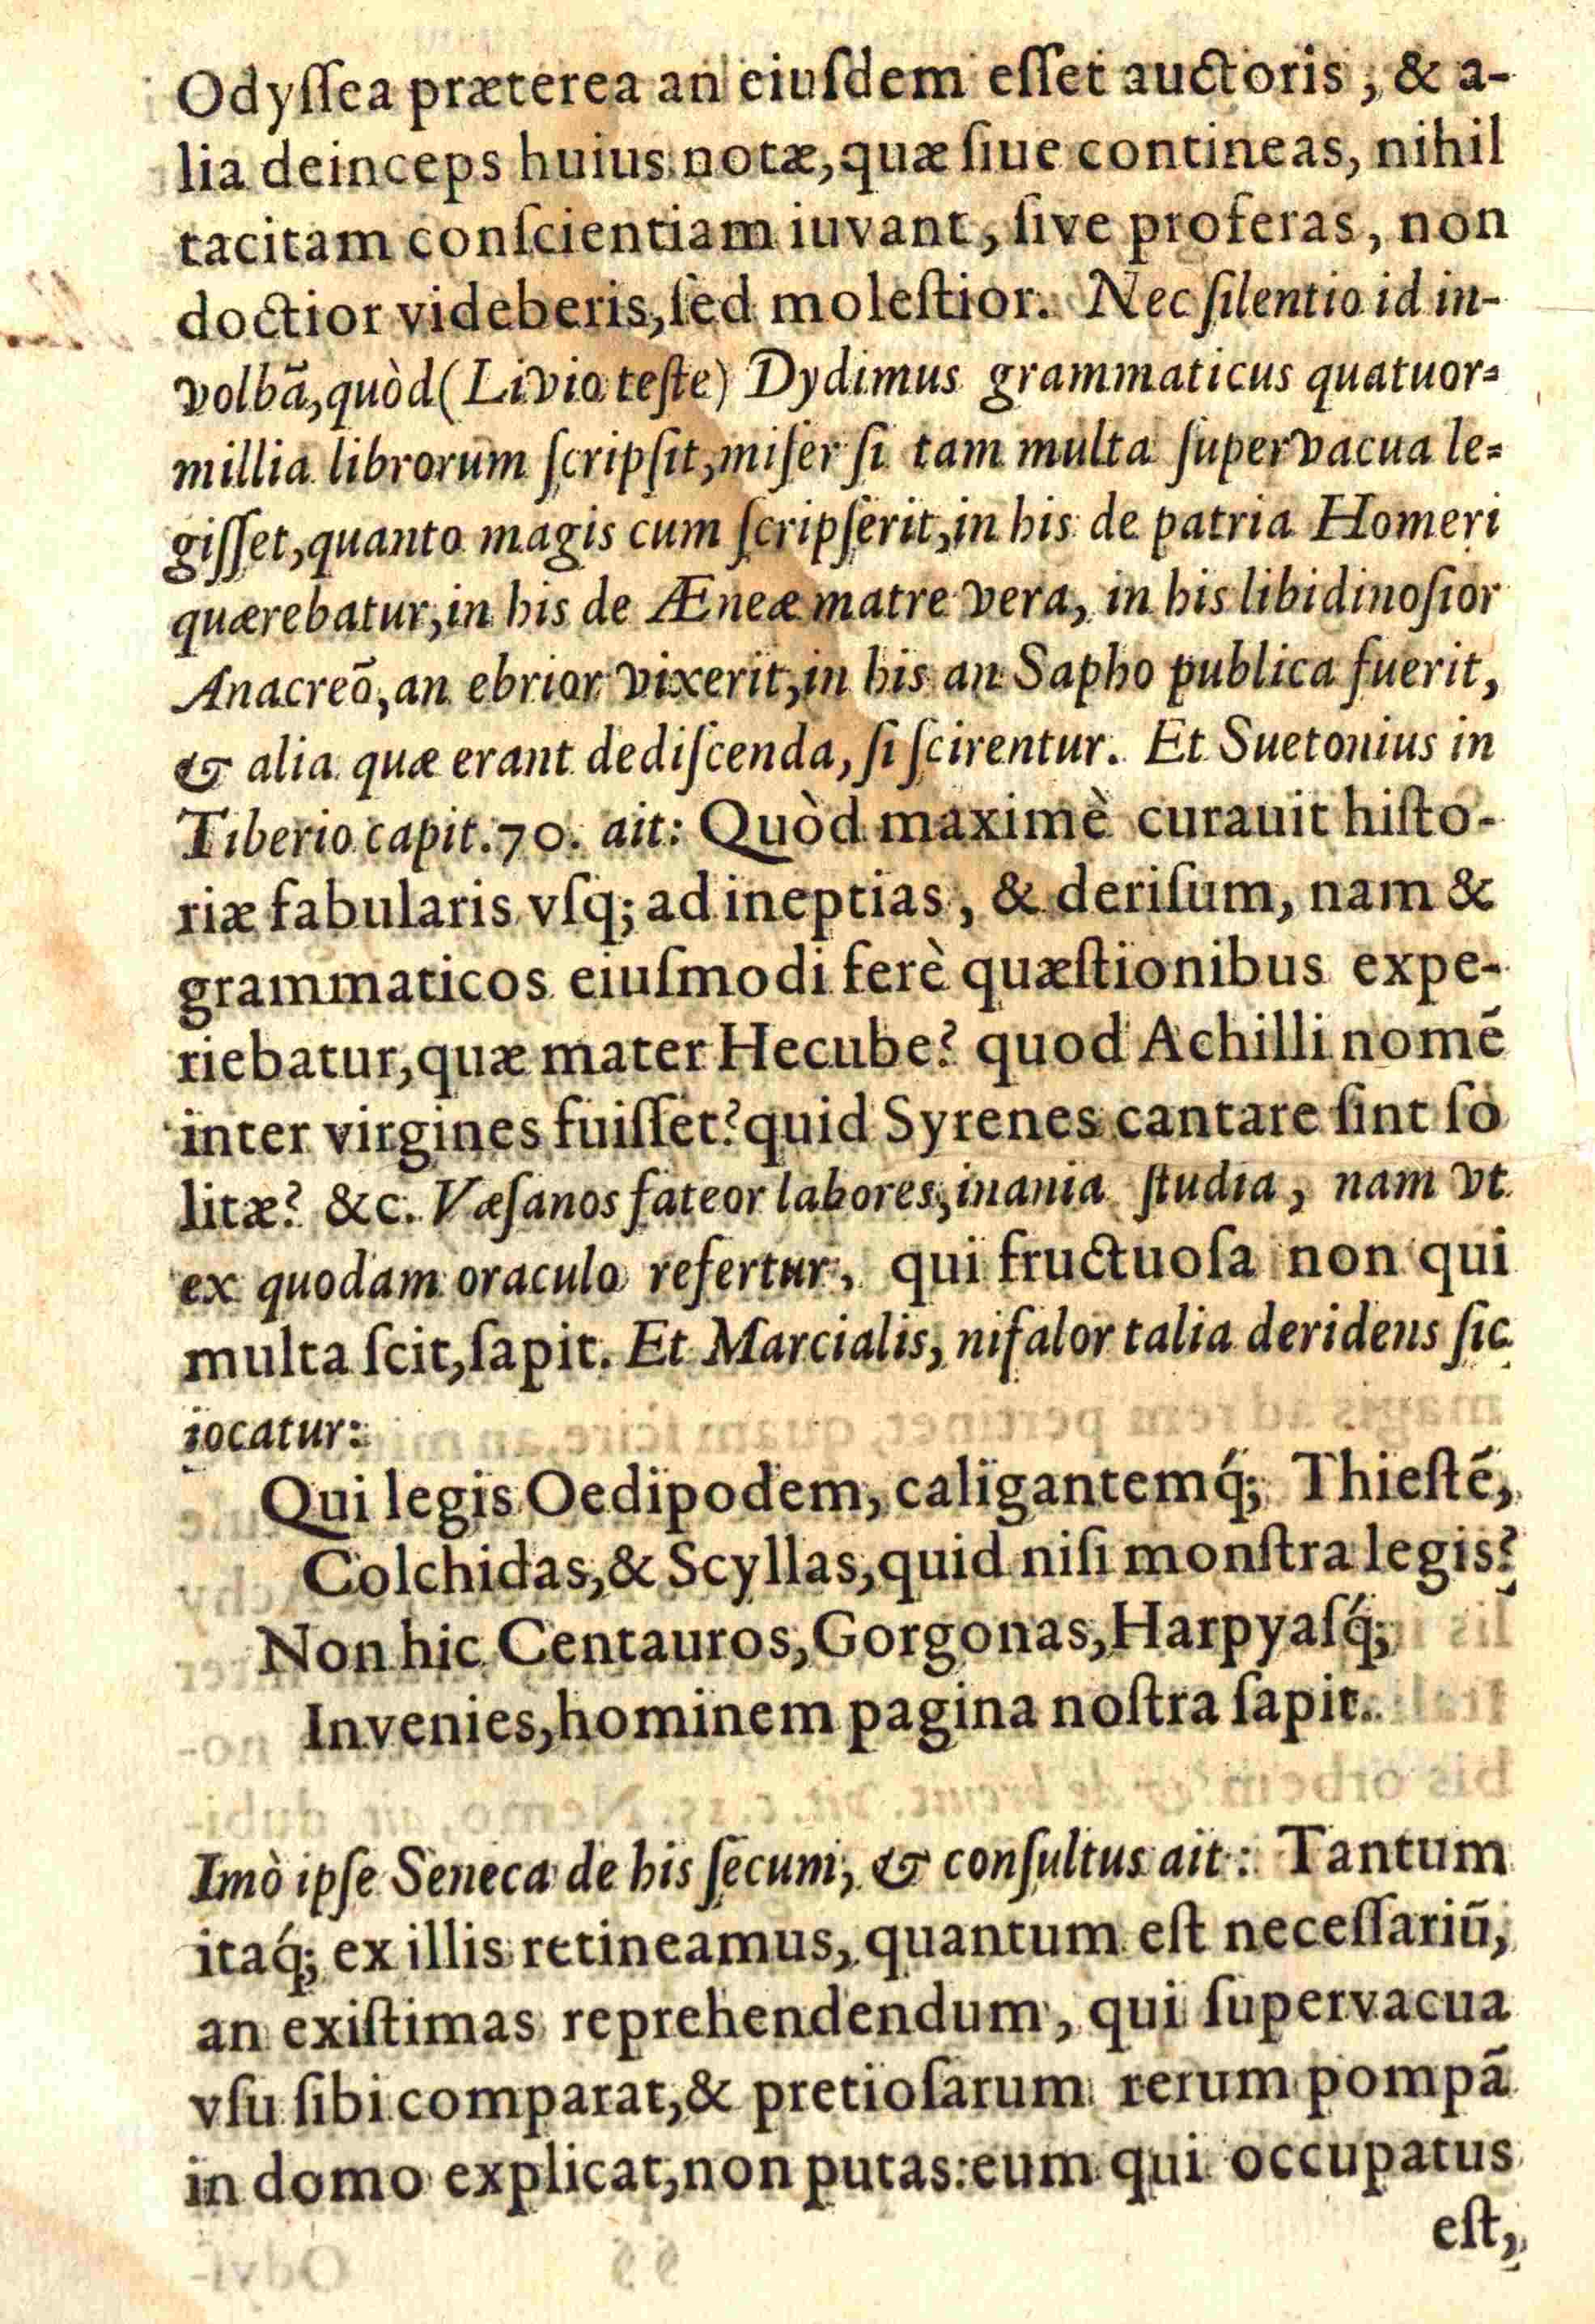 Odyſſea præterea an eiuſdem eſſet auctoris, & a-
lia deinceps huius notæ, quæ ſiue contineas, nihil
tacitam conſcientiam iuvant, ſive proferas, non
doctior videberis, ſed moleſtior. Nec ſilentio id in-
volbã, quòd (Livio teſte) Dydimus grammaticus quatuor-
millia librorum ſcripſit, miſer ſi tam multa ſupervacua le-
giſſet, quanto magis cum ſcripſerit, in his de patria Homeri
quærebatur, in his de Æneæ matre vera, in his libidinoſior
Anacreõ, an ebrior vixerit, in his an Sapho publica fuerit,
& alia quæ erant dediſcenda, ſi ſcirentur. Et Suetonius in
Tiberio capit. 70. ait: Quòd maximè curauit hiſto-
riæ fabularis vſq; ad ineptias, & deriſum, nam &
grammaticos eiuſmodi ferè quæſtionibus expe-
riebatur, quæ mater Hecube? quod Achilli nomẽ
inter virgines fuiſſet? quid Syrenes cantare ſint ſo
litæ? &c. Væſanos fateor labores, inania ſtudia, nam vt
ex quodam oraculo refertur, qui fructuoſa non qui
multa ſcit, ſapit. Et Marcialis, nifalor talia deridens ſic
iocatur:
Qui legis Oedipodem, caligantemq́; Thieſtẽ,
Colchidas, & Scyllas, quid niſi monſtra legis?
Non hic Centauros, Gorgonas, Harpyaſq́;
Invenies, hominem pagina noſtra ſapit.
Imò ipſe Seneca de his ſecum, & conſultus ait: Tantum
itaq́; ex illis retineamus, quantum eſt neceſſariũ,
an exiſtimas reprehendendum, qui ſupervacua
vſu ſibi comparat, & pretioſarum rerum pompã
in domo explicat, non putas: eum qui occupatus
eſt,